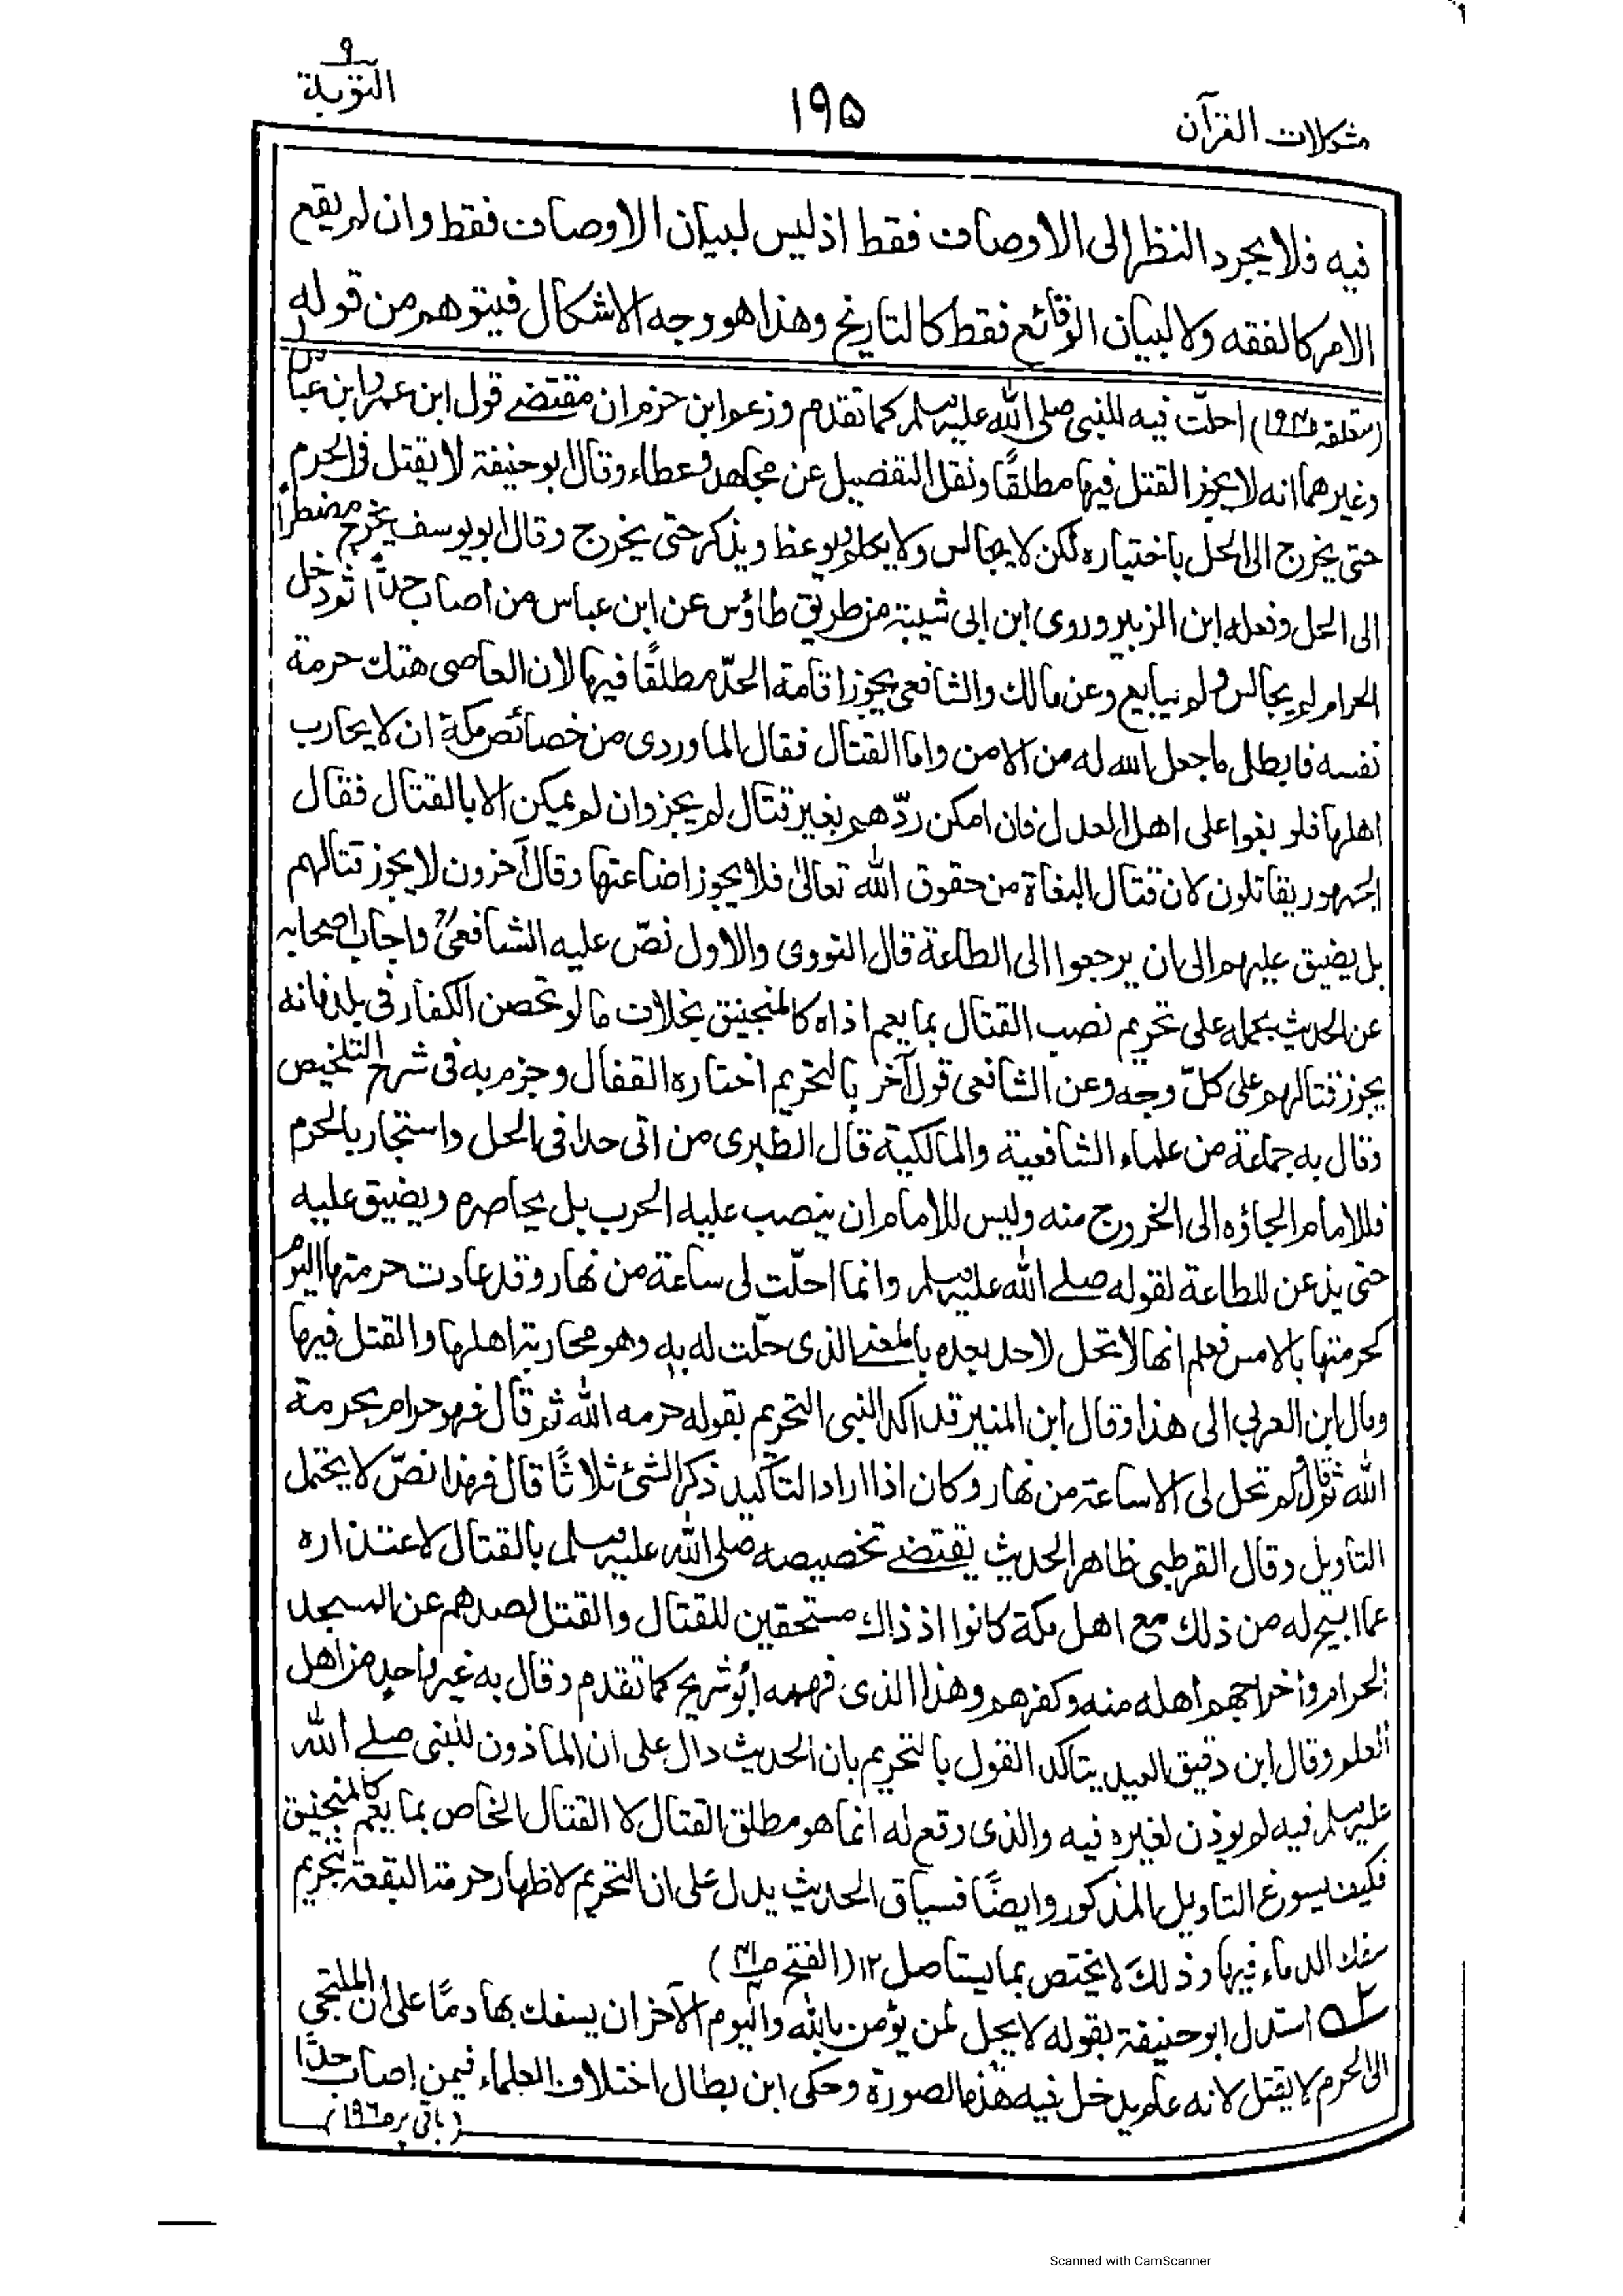 مشكلات القرآن
١٩٥
٩
التوبة
فيه فلا يجرد النظر الى الاوصاف فقط اذ ليس لبيان الاوصاف فقط وان لم يقع
الامر كالفقه ولا لبيان الوقائع فقط كالتاريخ وهذا هو وجه الاشكال فيتوهم من قوله
(متعلقه ص١٩٤) احلّت فيه للنبى صلى الله عليه وسلم كما تقدم وزعم ابن حزم ان مقتضے قول ابن عمر وابن عباس
وغيرهما انه لا يجوز القتل فيها مطلقًا ونقل التفصيل عن مجاهد وعطاء وقال ابو حنيفة لا يقتل فى الحرم
حتى يخرج الى الحل باختياره لكن لا يجالس ولا يكلم ويوعظ ويذكر حتى يخرج وقال ابو يوسف يخرج مضطراً
الى الحل وفعله ابن الزبير وروى ابن ابى شيبة من طريق طاؤس عن ابن عباس من اصاب حدًّا ثم دخل
الحرام لم يجالس ولم يبايع وعن مالك والشافعى يجوز اقامة الحدّ مطلقًا فيها لان العاصى هتك حرمة
نفسه فابطل ما جعل الله له من الامن واما القتال فقال الماوردى من خصائص مكة ان لا يحارب
اهلها فلو بغوا على اهل العدل فان امكن ردّهم بغير قتال لم يجز وان لم يمكن الا بالقتال فقال
الجمهور يقاتلون لان قتال البغاة من حقوق الله تعالىٰ فلا يجوز اضاعتها وقال آخرون لا يجوز قتالهم
بل يضيق عليهم الى ان يرجعوا الى الطاعة قال النووى والاول نصّ عليه الشافعىؒ واجاب اصحابه
عن الحديث بحمله على تحريم نصب القتال بما يعم اذاه كالمنجنيق بخلاف ما لو تحصن الكفار فى بلد فانه
يجوز قتالهم على كلّ وجه وعن الشافعى قول آخر بالتحريم اختاره القفال وجزم به فى شرح التلخيص
وقال به جماعة من علماء الشافعية والمالكية قال الطبرى من اتى حدا فى الحل واستجار بالحرم
فللامام الجاؤه الى الخروج منه وليس للامام ان ينصب عليه الحرب بل يحاصره ويضيق عليه
حتى يذعن للطاعة لقوله صلے الله عليه وسلم وانما احلّت لى ساعة من نهار وقد عادت حرمتها اليوم
كحرمتها بالامس فعلم انها لا تحل لاحد بعده بالمعنے الذى حلّت له به وهو محاربة اهلها والقتل فيها
ومال ابن العربى الى هذا وقال ابن المنير قد اكد النبى التحريم بقوله حرمه الله ثم قال فهو حرام بحرمة
الله ثم قال ولم تحل لى الا ساعة من نهار وكان اذا اراد التاكيد ذكر الشئ ثلاثًا قال فهذا نصّ لا يحتمل
التاويل وقال القرطبى ظاهر الحديث يقتضے تخصيصه صلى الله عليه وسلم بالقتال لاعتذاره
عما ابيح له من ذلك مع اهل مكة كانوا اذ ذاك مستحقين للقتال والقتل لصدهم عن المسجد
الحرام واخراجهم اهله منه وكفرهم وهذا الذى فهمه ابو شريح كما تقدم وقال به غير واحد من اهل
العلم وقال ابن دقيق العيد يتاكد القول بالتحريم بان الحديث دال على ان الماذون للنبى صلے الله
عليه وسلم فيه لم يوذن لغيره فيه والذى وقع له انما هو مطلق القتال لا القتال الخاص بما يعم كالمنجنيق
فكيف يسوغ التاويل المذكور وايضًا فسياق الحديث يدل على ان التحريم لاظهار حرمة البقعة بتحريم
سفك الدماء فيها وذلك لا يختص بما يستاصل ١٢ (الفتح
استدل ابو حنيفة بقوله لا يحل لمن يؤمن بالله واليوم الآخر ان يسفك بها دمًا على ان الملتجى
الى الحرم لا يقتل لانه عام يدخل فيه هذه الصورة وحكى ابن بطال اختلاف العلماء فيمن اصاب حدًّا
(باقى بر ص١٩٦)
Scanned with CamScanner